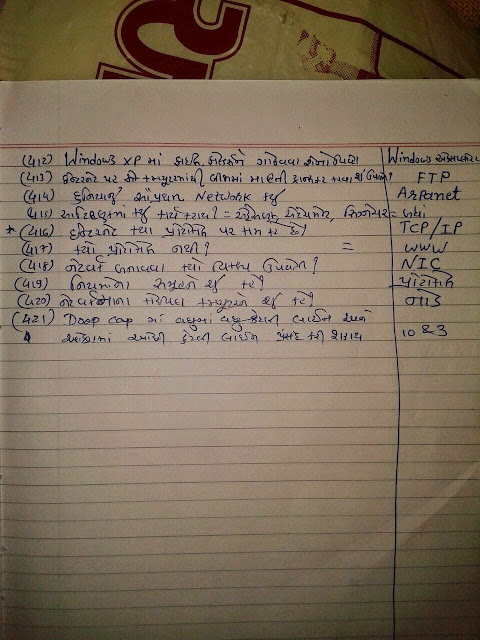 (412) Windows XP માં ફાઈલ, ફોલ્ડરને ગોઠવવા શેનો ઉપયોગ Windows એક્સપ્લોરર
(413) ઈન્ટરનેટ પર એક કમ્પ્યુટરમાંથી બીજામાં માહિતી ટ્રાન્સફર કરવા શું ઉપયોગ? FTP
(414) દુનિયાનું સૌપ્રથમ Network કયું Arpanet
(415) કયું કાર્ય કરાય? =
* (416) ઈન્ટરનેટ કયા પ્રોટોકોલ પર કામ કરે છે? TCP/IP
(417) કયો પ્રોટોકોલ નથી? = WWW
(418) નેટવર્ક બનાવવા કયો વિકલ્પ ઉપયોગી? NIC
(419) નિયમોના સમૂહને શું કહે? પ્રોટોકોલ
(420) નેટવર્કમાંના કમ્પ્યુટરને શું કહે? નોડ
(421) Doop cap માં વધુમાં વધુ કેટલી લાઈન અને
ઓછામાં ઓછી કેટલી લાઈન પસંદ કરી શકાય 10 & 3